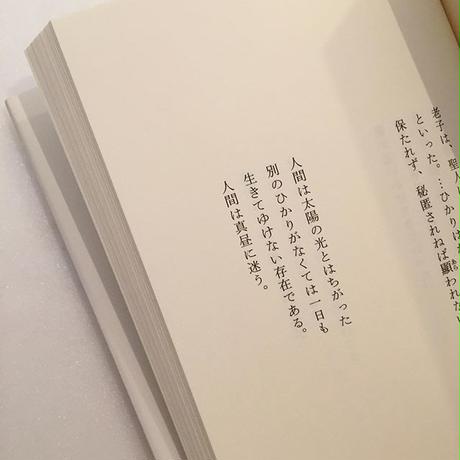 老子は、聖人
といった。…ひかりは
保たれず、秘匿されねば顕われない
人間は太陽の光とはちがった
別のひかりがなくては一日も
生きてゆけない存在である。
人間は真昼に迷う。